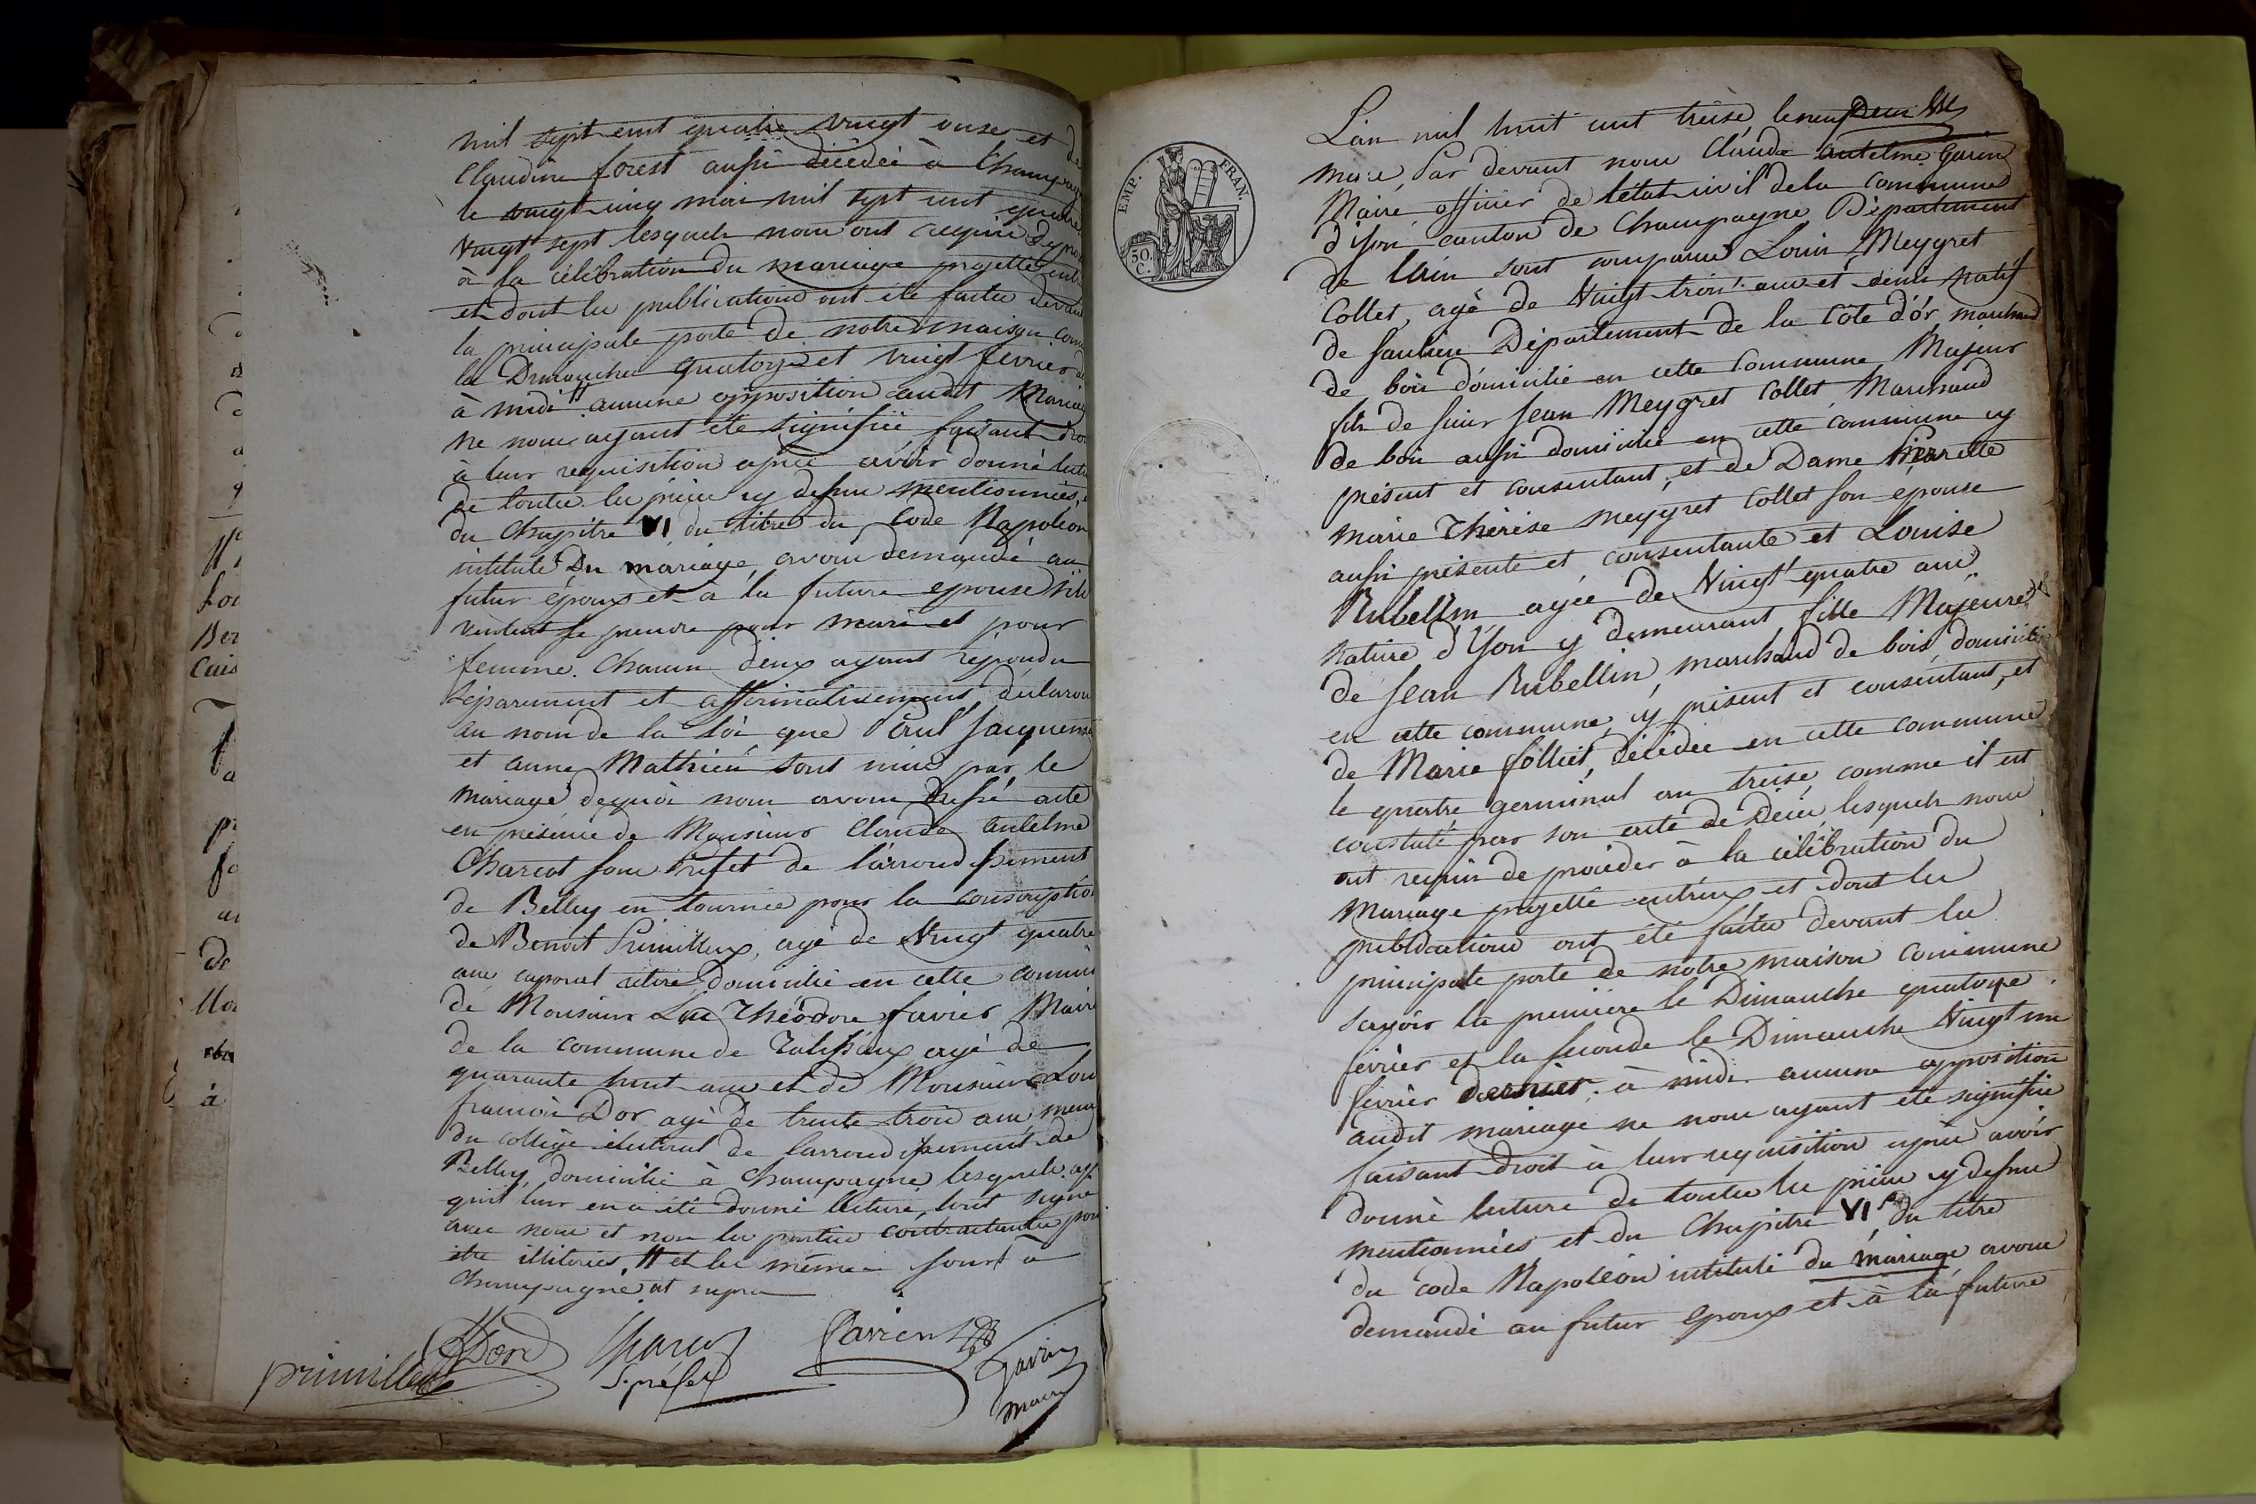 mil sept cent quatre vingt onze et de
Claudine forest aussi décédée à Champag
le vingt cinq mai mil sept cent quatre
vingt sept lesquels nous ont requis de pro
à la célébration du mariage projetté entr
et dont les publications ont été faites devant
la principale porte de notre maison com
les Dimanches quatorze et vingt fevrier
à midi aucune opposition audit Mariag
ne nous ayant été signifiée faisant dro
à leur requisition après avoir donné lectu
de toutes les pièces cy dessus mentionnées,
du Chapitre VI du titre du Code Napoléon
intitulé Du mariage, avons demandé au
futur époux et à la future epouse s'ils
veulent se prendre pour mari et pour
femme. Chacun d'eux ayant répondu
séparement et affirmativement, déclarons
au nom de la loi que Paul Jacquem
et anne Mathieu sont unis par le
mariage dequoi nous avons dressé acte
en présence de Monsieur Claude antelme
Charcot sous Préfet de l'arrondissement
de Belley en tournée pour la conscription
de Benoit Primilleux, agé de vingt quatre
ans caporal retiré domicilié en cette commu
de Monsieur Luc Théodore favier Maire
de la commune de Talissieux agé de
quarante huit ans et de Monsieur Lou
françois Dor agé de trente trois ans, mem
du collège électoral de l'arrondissement de
Belley, domicilié à Champagne lesquels ap
qu'il leur en a été donné lecture, l'ont signé
avec nous et non les parties contractantes pour
être illiterés, et les mêmes jour à
Champagne ut supra
Dor Charcot favier
primilleux S. préfet
Garin
maire
EMP. FRAN.
50. C.
L'an mil huit cent treise, le neuf
mars, Par devant nous Claude antelme Garin
Maire, officier de l'état civil de la commune
d'yon canton de Champagne Département
de l'ain sont comparus Louis Meygret
Collet, agé de vingt trois ans et demi natif
de saulieu Département de la Côte d'or, marchand
de bois domicilié en cette Commune Majeur
fils de sieur Jean Meygret Collet Marchand
de bois aussi domicilié en cette commune cy
présent et consentant, et de Dame Pierrette
Marie Thérèse Meygret Collet son épouse
aussi présente et consentante et Louise
Rubellin agée de vingt quatre ans
native d'yon y demeurant fille Majeure
de Jean Rubellin, marchand de bois domicilié
en cette commune, cy présent et consentant, et
de Marie folliet, décédée en cette commune
le quatre germinal an treise, comme il est
constaté par son acte de Décès, lesquels nous
ont requis de procéder à la célébration du
Mariage projetté entr'eux et dont les
publications ont été faites devant la
principale porte de notre maison commune
sçavoir la première le Dimanche quatorze
février et la seconde le Dimanche vingt un
février dernier, à midi. aucune opposition
audit mariage ne nous ayant été signifiée
faisant droit à leur requisition après avoir
donné lecture de toutes les pièces cy dessus
mentionnées et du Chapitre VI du titre
du code Napoléon intitulé du mariage avons
demandé au futur epoux et à la future